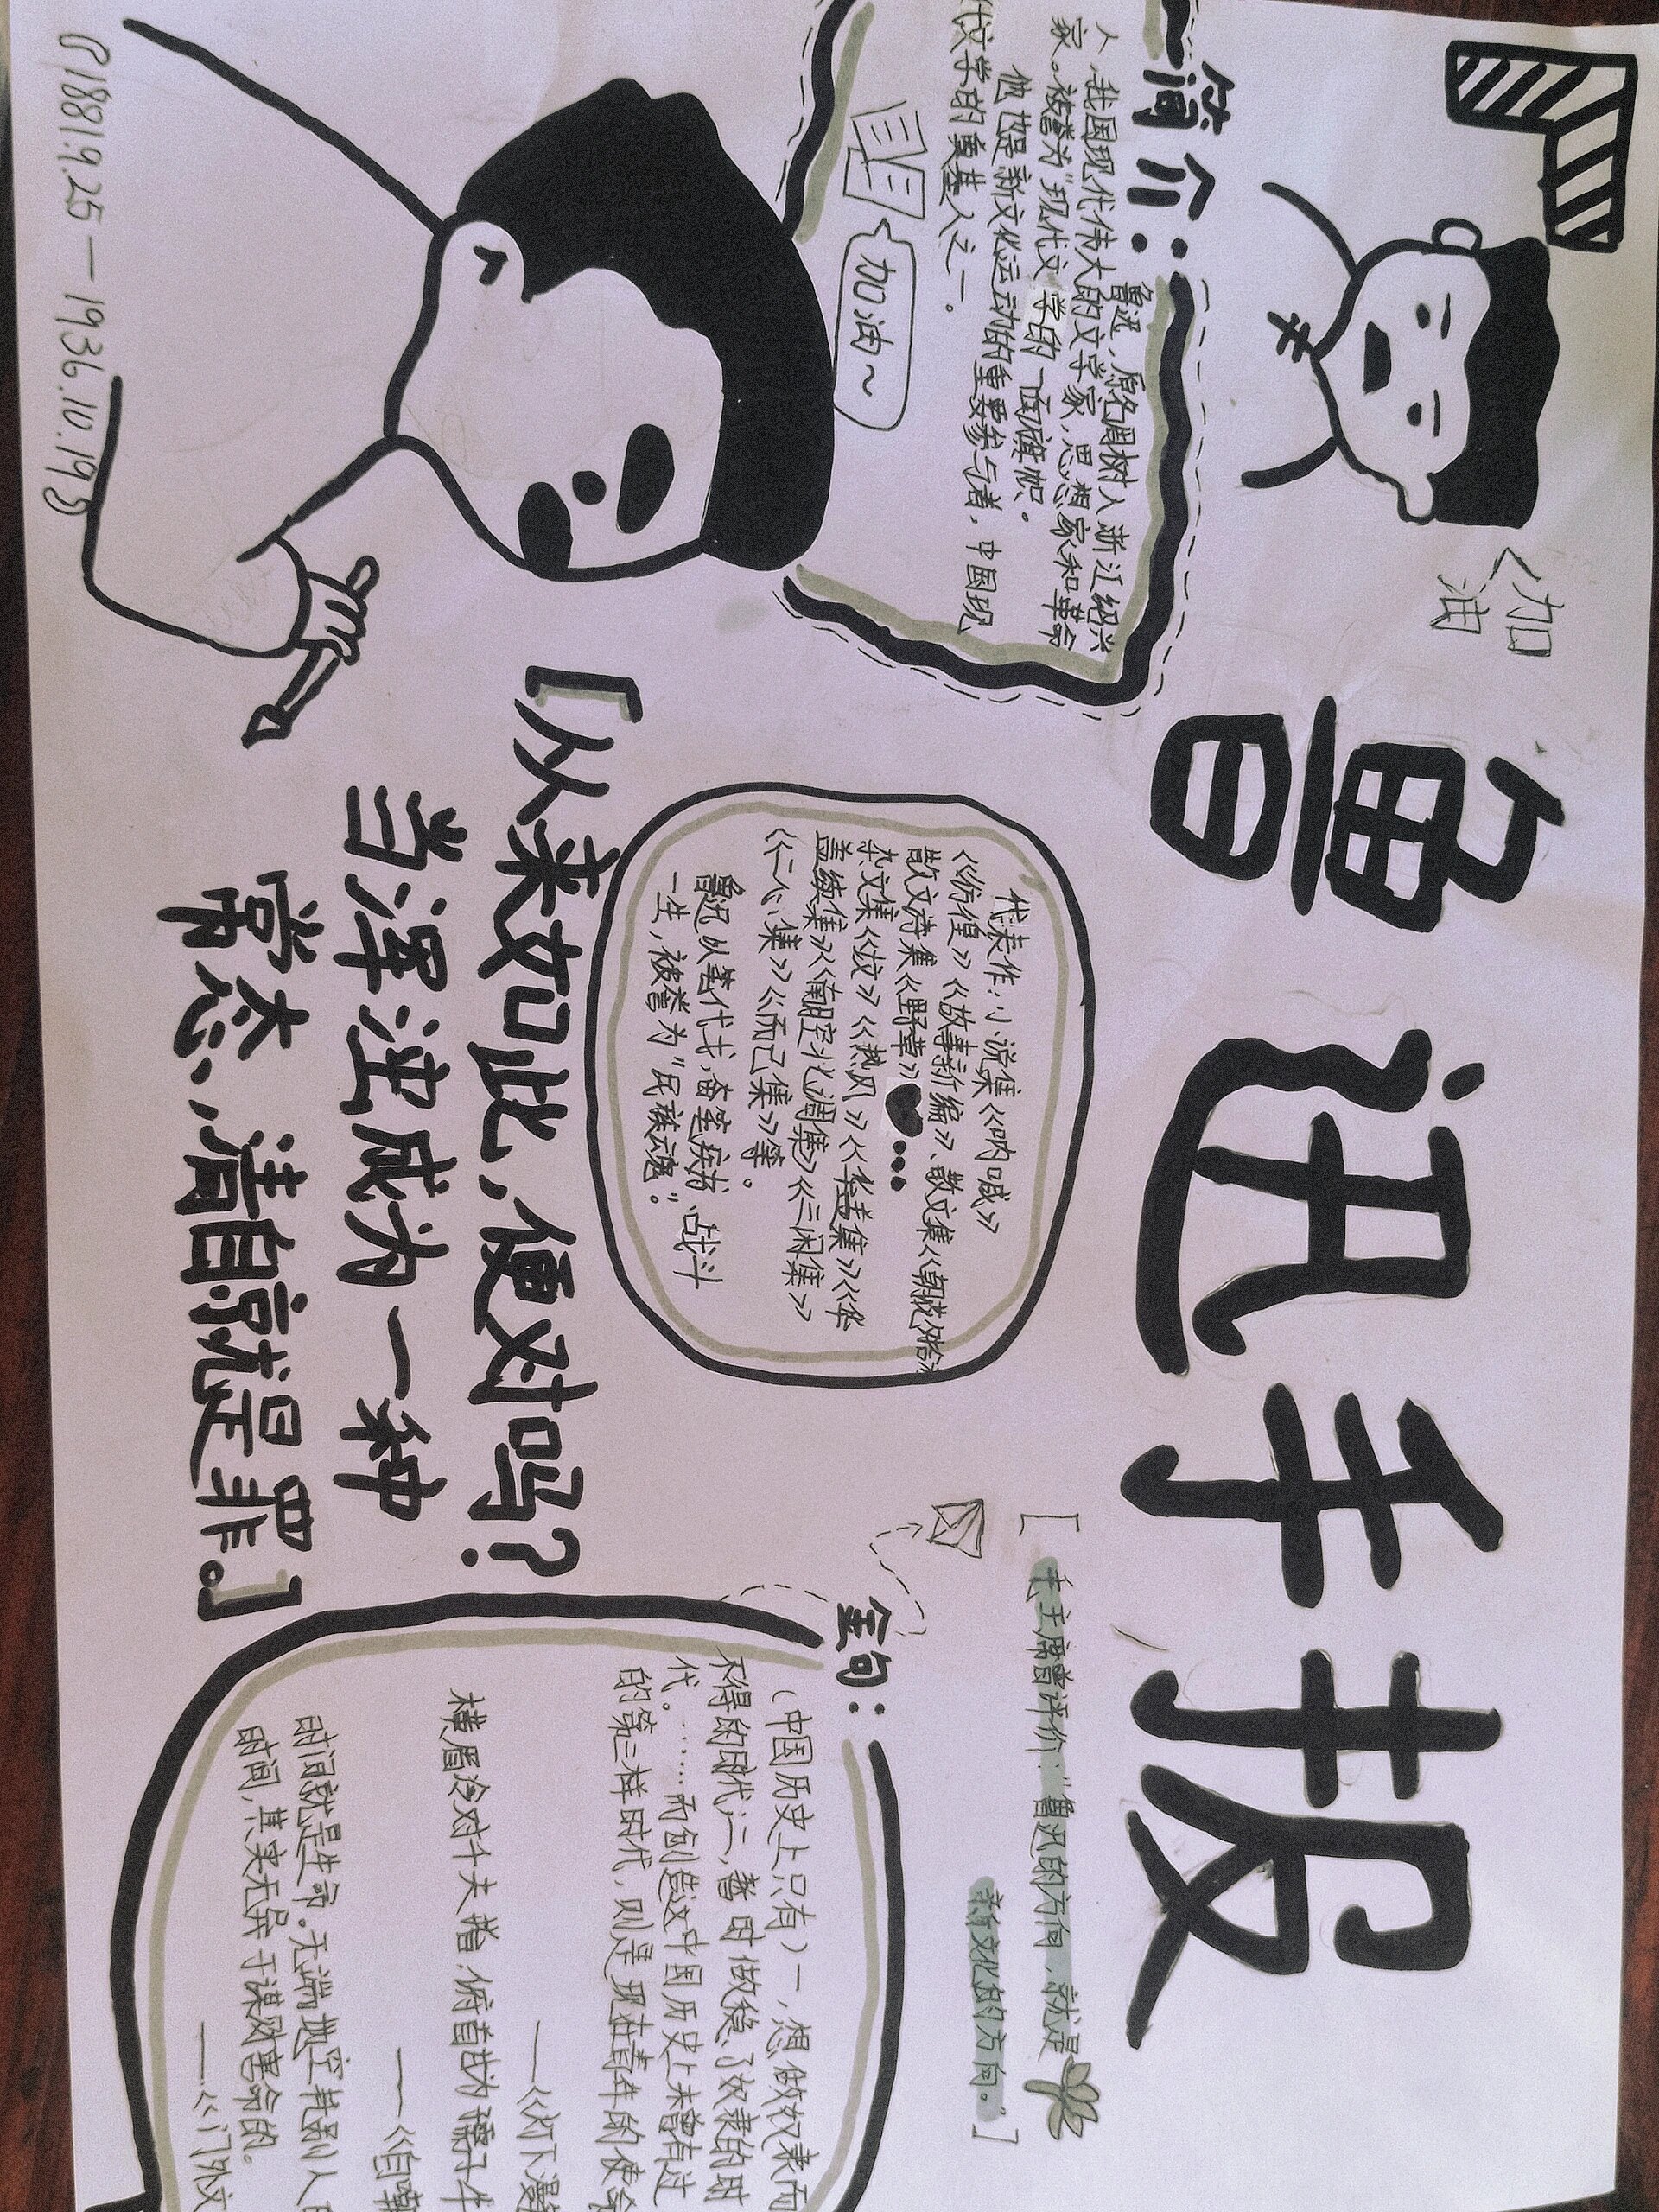 鲁迅手报
加油
简介：
鲁迅、原名周树人、浙江绍兴
人、我国现代伟大的文学家、思想家和革命
家。被誉为“现代文学的一面旗帜。
他也是新文化运动的重要参与者，中国现
代文学的奠基人之一。
加油～
(1881.9.25—1936.10.19)
代表作：小说集《呐喊》
《彷徨》《故事新编》、散文集《朝花夕拾
散文诗集《野草》
杂文集《坟》《热风》《华盖集》《华
盖续集》《南腔北调集》《三闲集》
《二心集》《而已集》等。
鲁迅以笔代戈，奋笔疾书、战斗
一生，被誉为“民族魂”。
[从来如此，便对吗？
当浑浊成为一种
常态，清白就是罪。]
[毛主席曾评价：“鲁迅的方向，就是
新文化的方向。”]
金句：
（中国历史上只有）一，想做奴隶而
不得的时代；二，暂时做稳了奴隶的时
代。……而创造这中国历史上未曾有过
的第三样时代，则是现在青年的使命
——《灯下漫
横眉冷对千夫指，俯首甘为孺子牛
——《自嘲
时间就是生命。无端地空耗别人
时间，其实无异于谋财害命的。
——《门外文